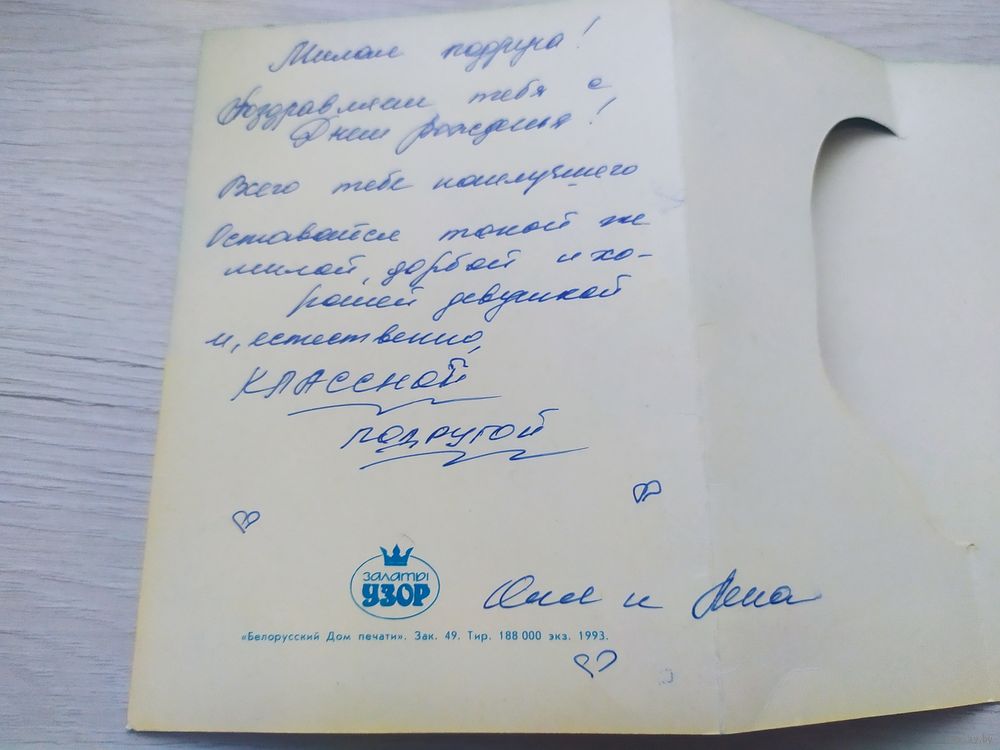 Милая подруга!
Поздравляем тебя с
Днем Рожденья!
Всего тебе наилучшего
Оставайся такой же
милой, доброй и хо-
рошей девушкой
и, естественно,
КЛАССНОЙ
ПОДРУГОЙ
ЗАЛАТЫ
УЗОР
Оля и Лена
«Белорусский Дом печати». Зак. 49. Тир. 188 000 экз. 1993.